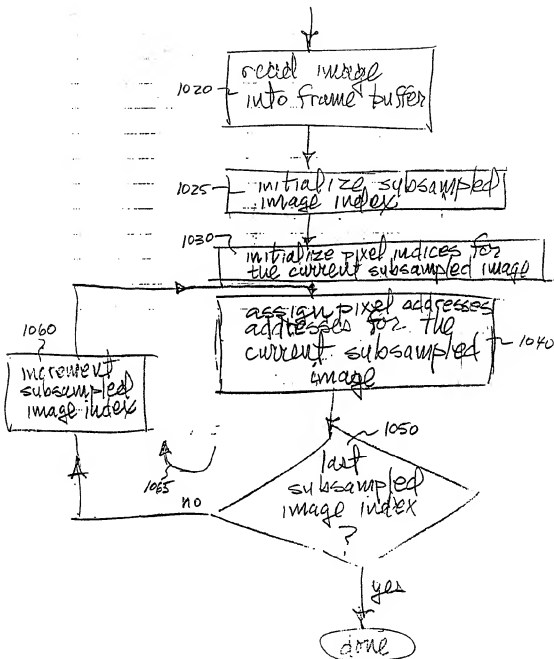 1020
read image
into frame buffer
1025
initialize subsampled
image index
1030
initialize pixel indices for
the current subsampled image
assign pixel addresses
addresses for the
current subsampled
image
1040
1060
increment
subsampled
image index
1050
last
subsampled
image index
?
1065
no
yes
done